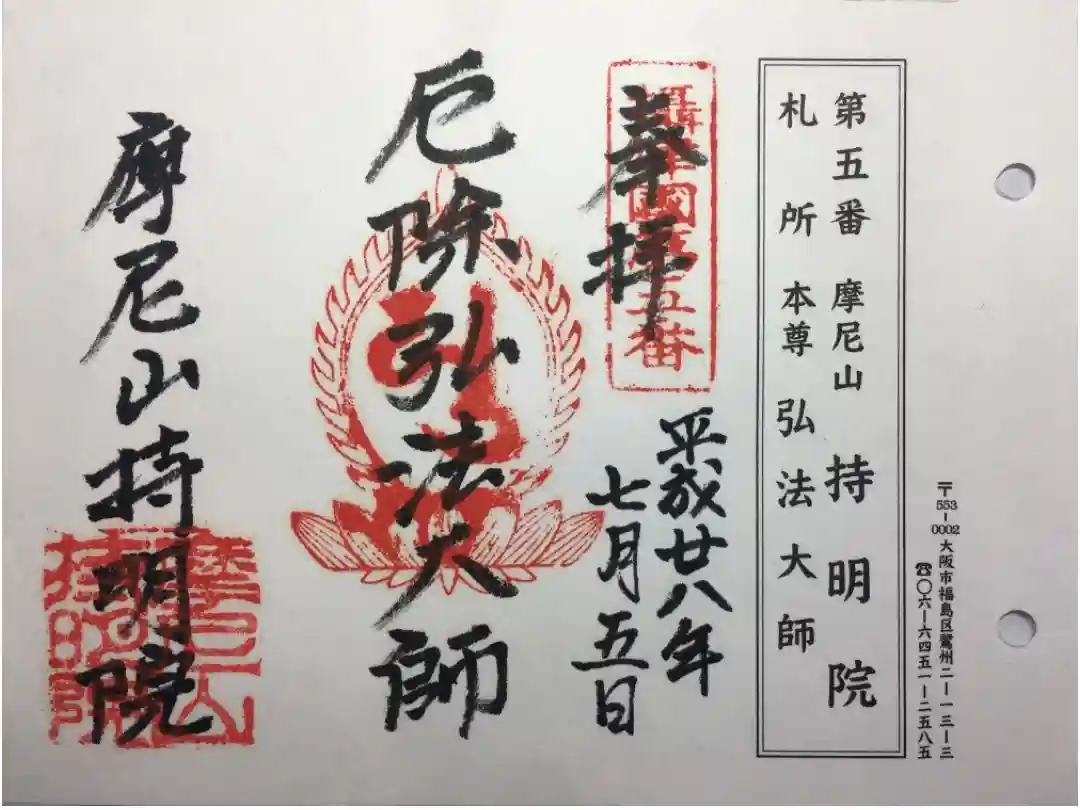 〒553-0002 大阪市福島区鷺州二ー一三ー三
☎〇六ー六四五一ー二五八五
第五番 摩尼山 持明院
札所 本尊 弘法大師
奉拝
攝津國第五番
平成廿八年
七月五日
厄除弘法大師
摩尼山持明院
摩尼山
持明院